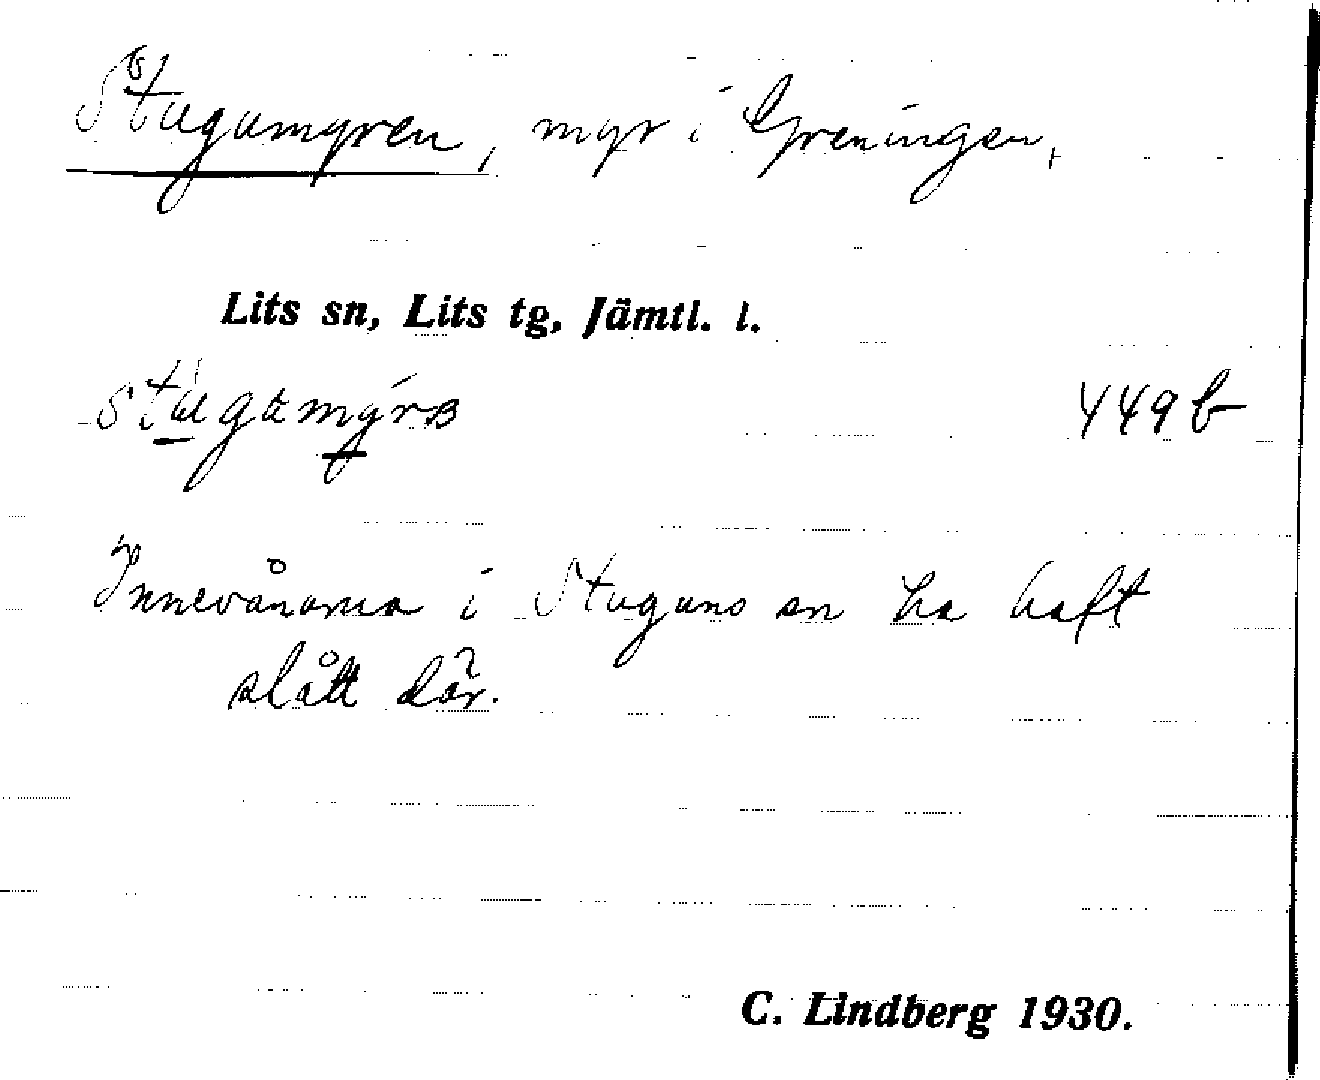 Stugumyren, myr i Greningen,
Lits sn, Lits tg, Jämtl. l.
stugumýrɜ 449 b
Innevånarna i Stuguns sn ha haft
slått där.
C. Lindberg 1930.